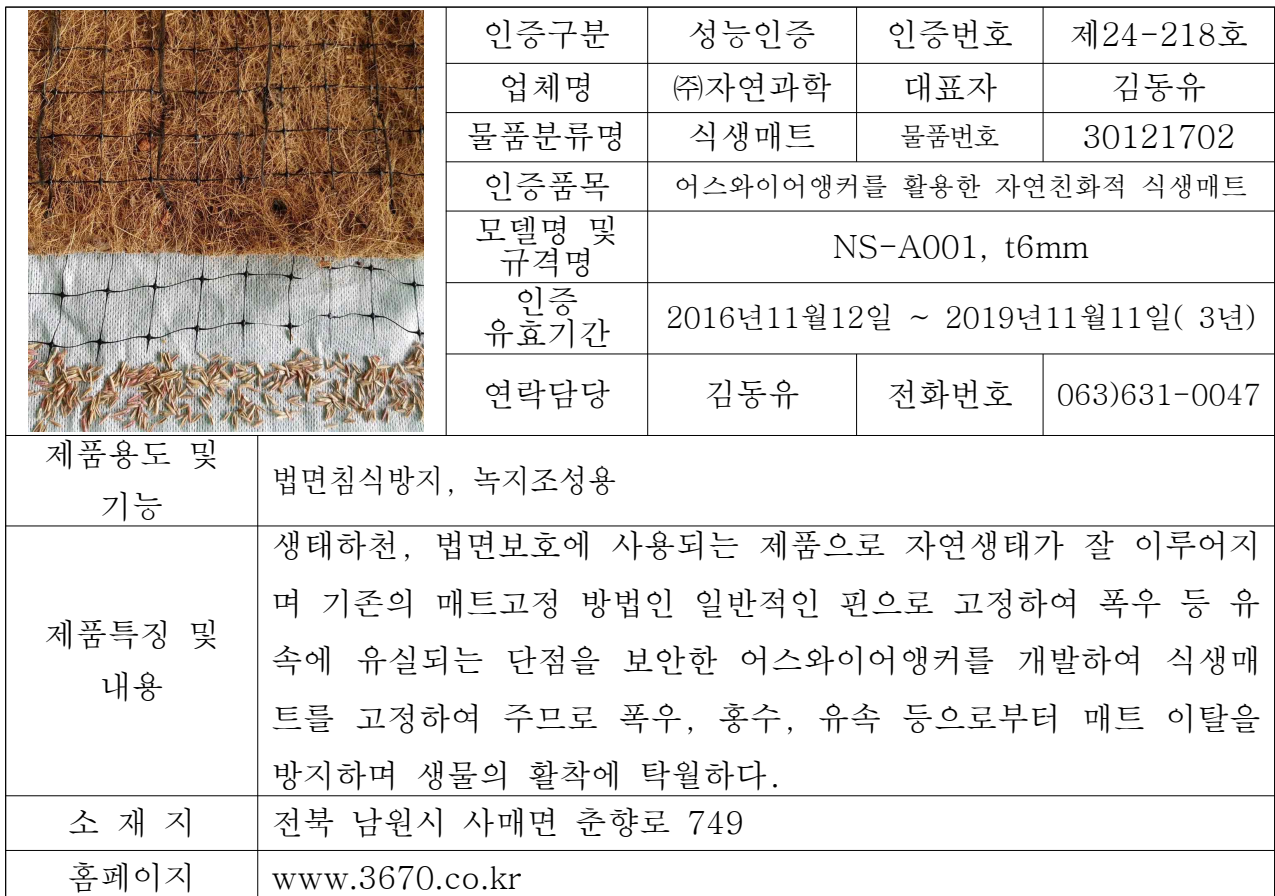 인증구분 성능인증 인증번호 제24-218호
업체명 ㈜자연과학 대표자 김동유
물품분류명 식생매트 물품번호 30121702
인증품목 어스와이어앵커를 활용한 자연친화적 식생매트
모델명 및
규격명
NS-A001, t6mm
인증
유효기간
2016년11월12일 ~ 2019년11월11일( 3년)
연락담당 김동유 전화번호 063)631-0047
제품용도 및
기능
법면침식방지, 녹지조성용
제품특징 및
내용
생태하천, 법면보호에 사용되는 제품으로 자연생태가 잘 이루어지
며 기존의 매트고정 방법인 일반적인 핀으로 고정하여 폭우 등 유
속에 유실되는 단점을 보안한 어스와이어앵커를 개발하여 식생매
트를 고정하여 주므로 폭우, 홍수, 유속 등으로부터 매트 이탈을
방지하며 생물의 활착에 탁월하다.
소 재 지 전북 남원시 사매면 춘향로 749
홈페이지 www.3670.co.kr